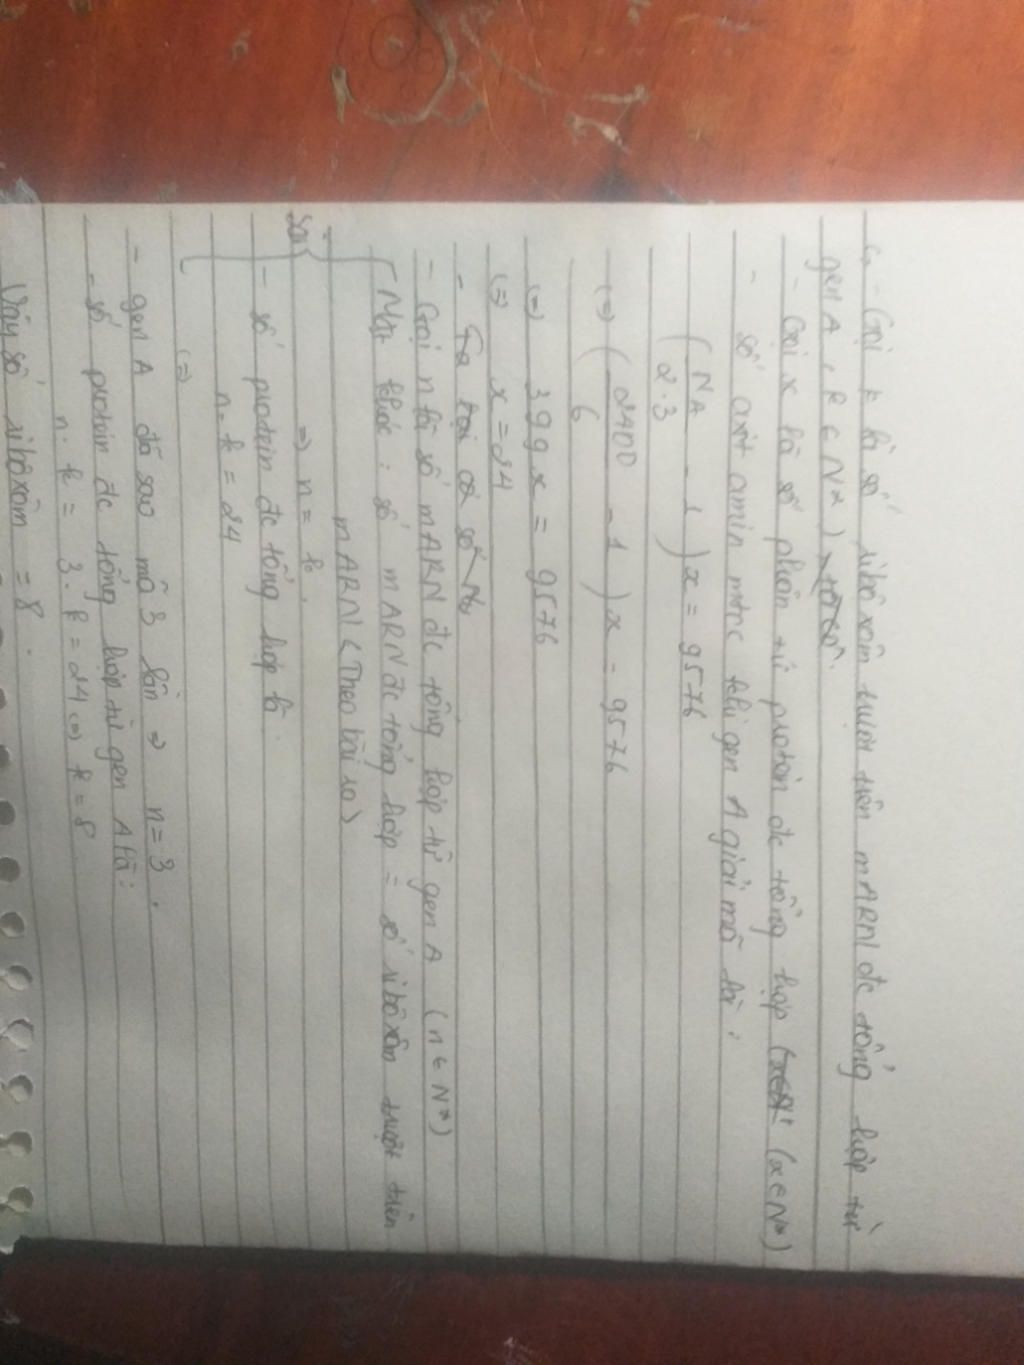 c, - Gọi k là số ribôxôm trượt trên mARN đc tổng hợp từ
gen A, k ∈ N*)
- Gọi x là số phân tử protein đc tổng hợp (x∈N*)
- số axit amin mtcc khi gen A giải mã là:
(NA/2.3 - 1)x = 9576
(=) (2400/6 - 1)x = 9576
(=) 399x = 9576
(=) x = 24
- Ta có số Nu
- Gọi n là số mARN đc tổng hợp từ gen A (n ∈ N*)
Mặt khác: số mARN đc tổng hợp = số ribôxôm trượt trên
mARN (Theo bài ra)
Sai
=> n = k.
- số protein đc tổng hợp là
n.k = 24
(=)
- gen A đã sao mã 3 lần => n = 3.
- số protein đc tổng hợp từ gen A là:
n.k = 3.k = 24 (=) k = 8.
Vậy số ribôxôm = 8.